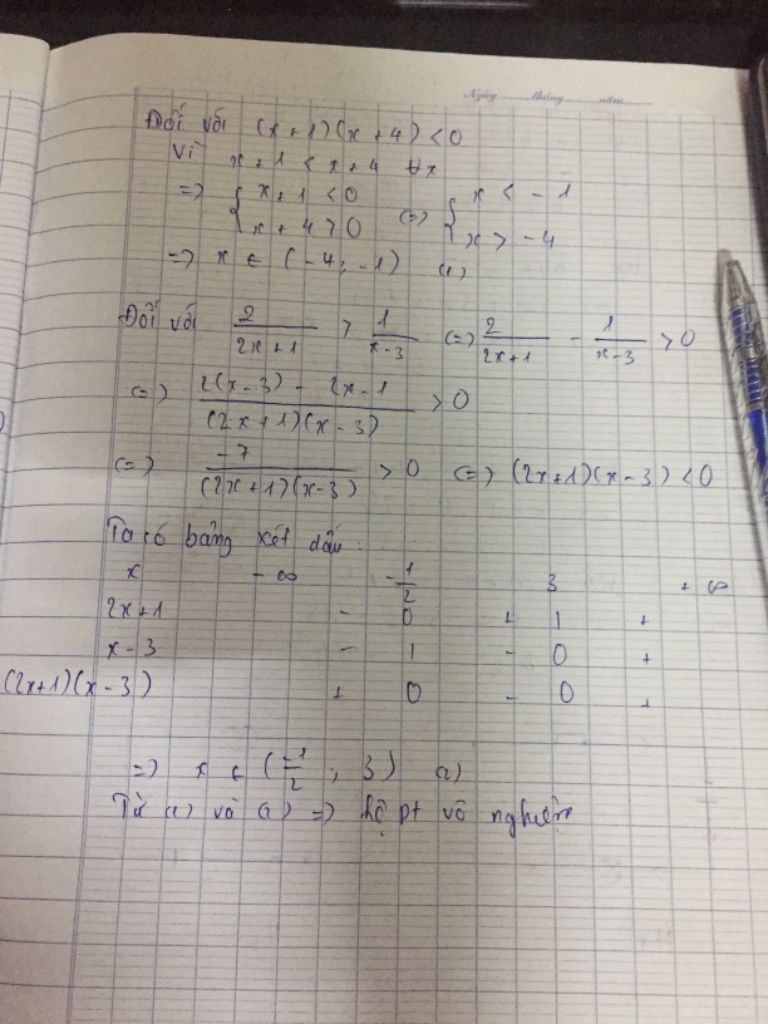 Ngày tháng năm
Đối với (x+1)(x+4) < 0
Vì x+1 < x+4 ∀x
=> { x+1 < 0 (=) { x < -1
x+4 > 0 x > -4
=> x ∈ (-4; -1) (1)
Đối với 2/(2x+1) > 1/(x-3) (=) 2/(2x+1) - 1/(x-3) > 0
(=) (2(x-3) - 2x-1)/((2x+1)(x-3)) > 0
(=) -7/((2x+1)(x-3)) > 0 (=) (2x+1)(x-3) < 0
Ta có bảng xét dấu:
x -∞ -1/2 3 +∞
2x+1 - 0 + 1 +
x-3 - 1 - 0 +
(2x+1)(x-3) + 0 - 0 +
=> x ∈ (-1/2; 3) (2)
Từ (1) và (2) => hệ pt vô nghiệm